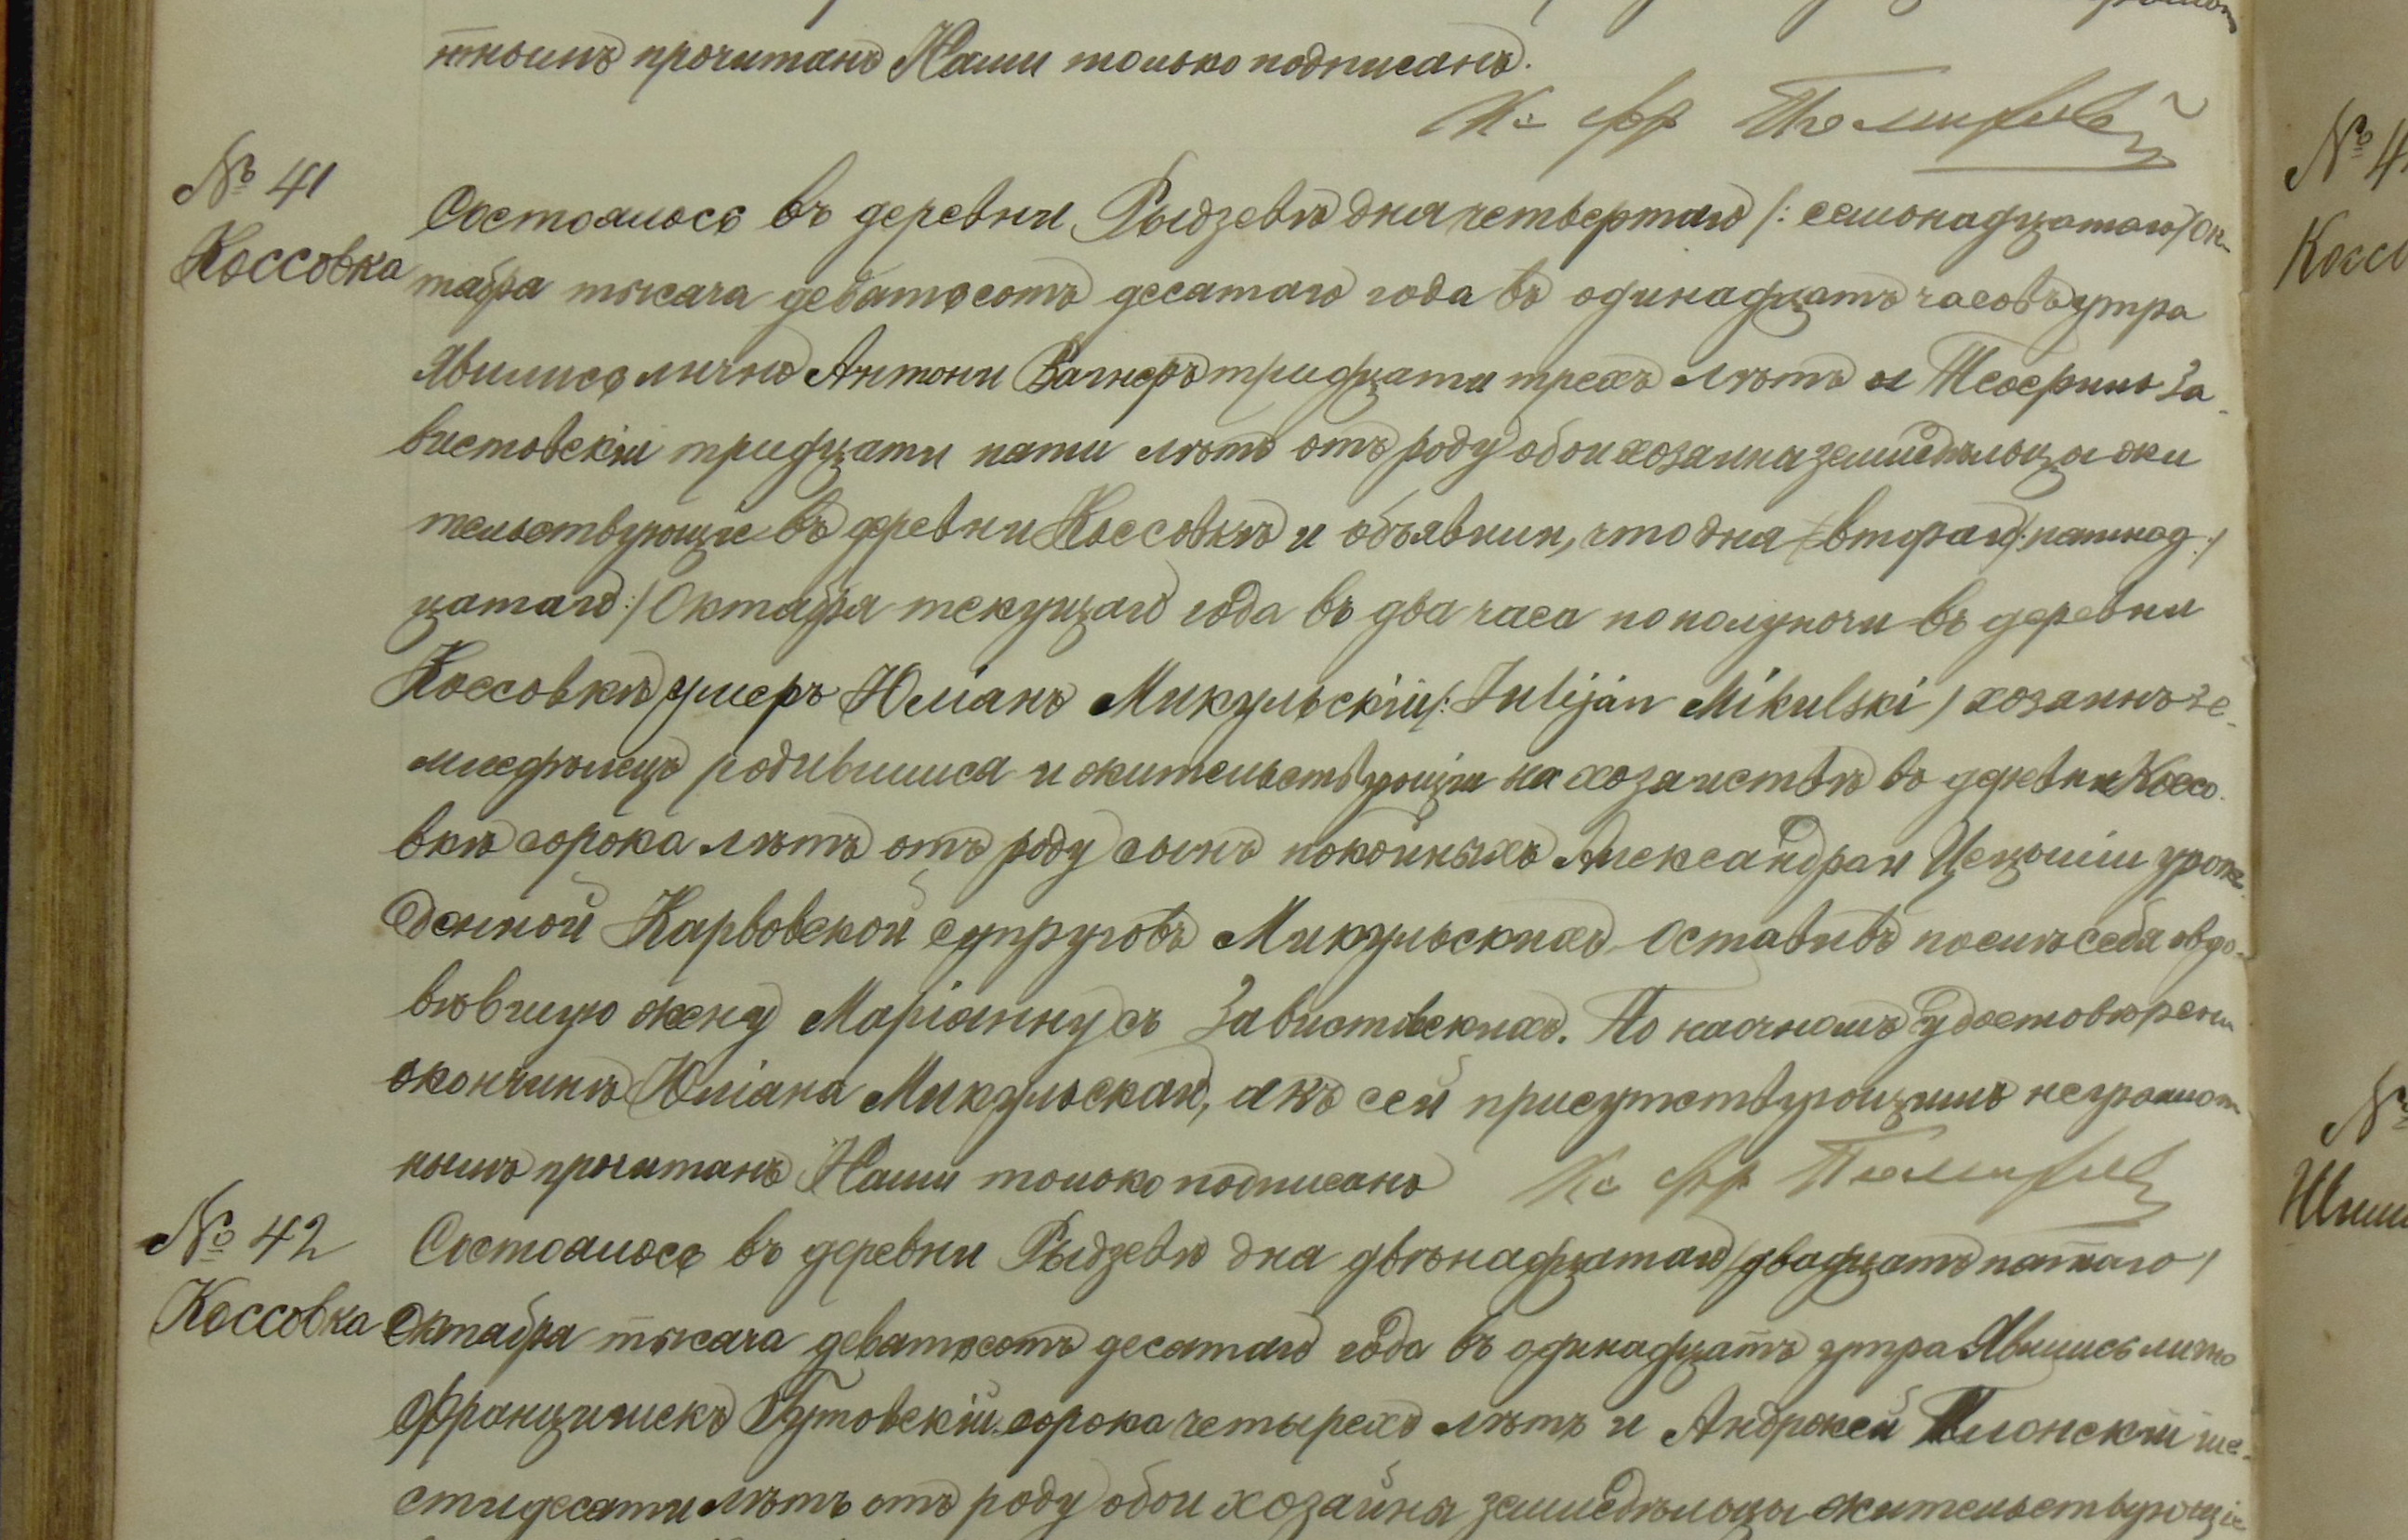 тнымъ прочитанъ Нами только подписанъ.
№ 41
Коссовка
Состоялось въ деревни Рыдзевѣ дня четвертаго /: семьнадцатаго/ Ок-
тября тысяча девятьсотъ десятаго года въ одинадцать часовъ утра
Явились лично Антони Вагнеръ тридцати трехъ лѣтъ и За-
вистовскій тридцати пяти лѣтъ отъ роду обои хозяина земледѣльца жи
тельствующіе въ деревни Коссовкѣ и объявили, что дня втораго /: пятнад :/
цатаго :/ Октября текущаго года въ два часа по полуночи въ деревни
Коссовкѣ умеръ Юліанъ Микульскій /: Julijan Mikulski / хозяинъ зе-
мледѣлецъ родившійся и жительствующій на хозяиствѣ въ деревни Коссо-
вкѣ сорока лѣтъ отъ роду сынъ покойныхъ Александра и Цецыліи урож-
денной Карвовской супруговъ Микульскихъ оставивъ послѣ себя овдо-
вѣвшую жену Маріанну съ Завистовскихъ. По наочномъ удостовѣреніи
окончинѣ Юліана Микульскаго, актъ сей присутствующимъ неграмот
нымъ прочитанъ Нами только подписанъ
№ 42
Коссовка
Состоялось въ деревни Рыдзевѣ дня двѣнадцатаго /двадцать пятаго/
Октября тысяча девятьсотъ десятаго года въ одинадцать утра Явились лично
Францишекъ Гутовскій сорока четырехъ лѣтъ и Андржей ше-
стидесяти лѣтъ отъ роду обои хозяйна земледѣльцы жительствующіе
№ 4
Коссо
№